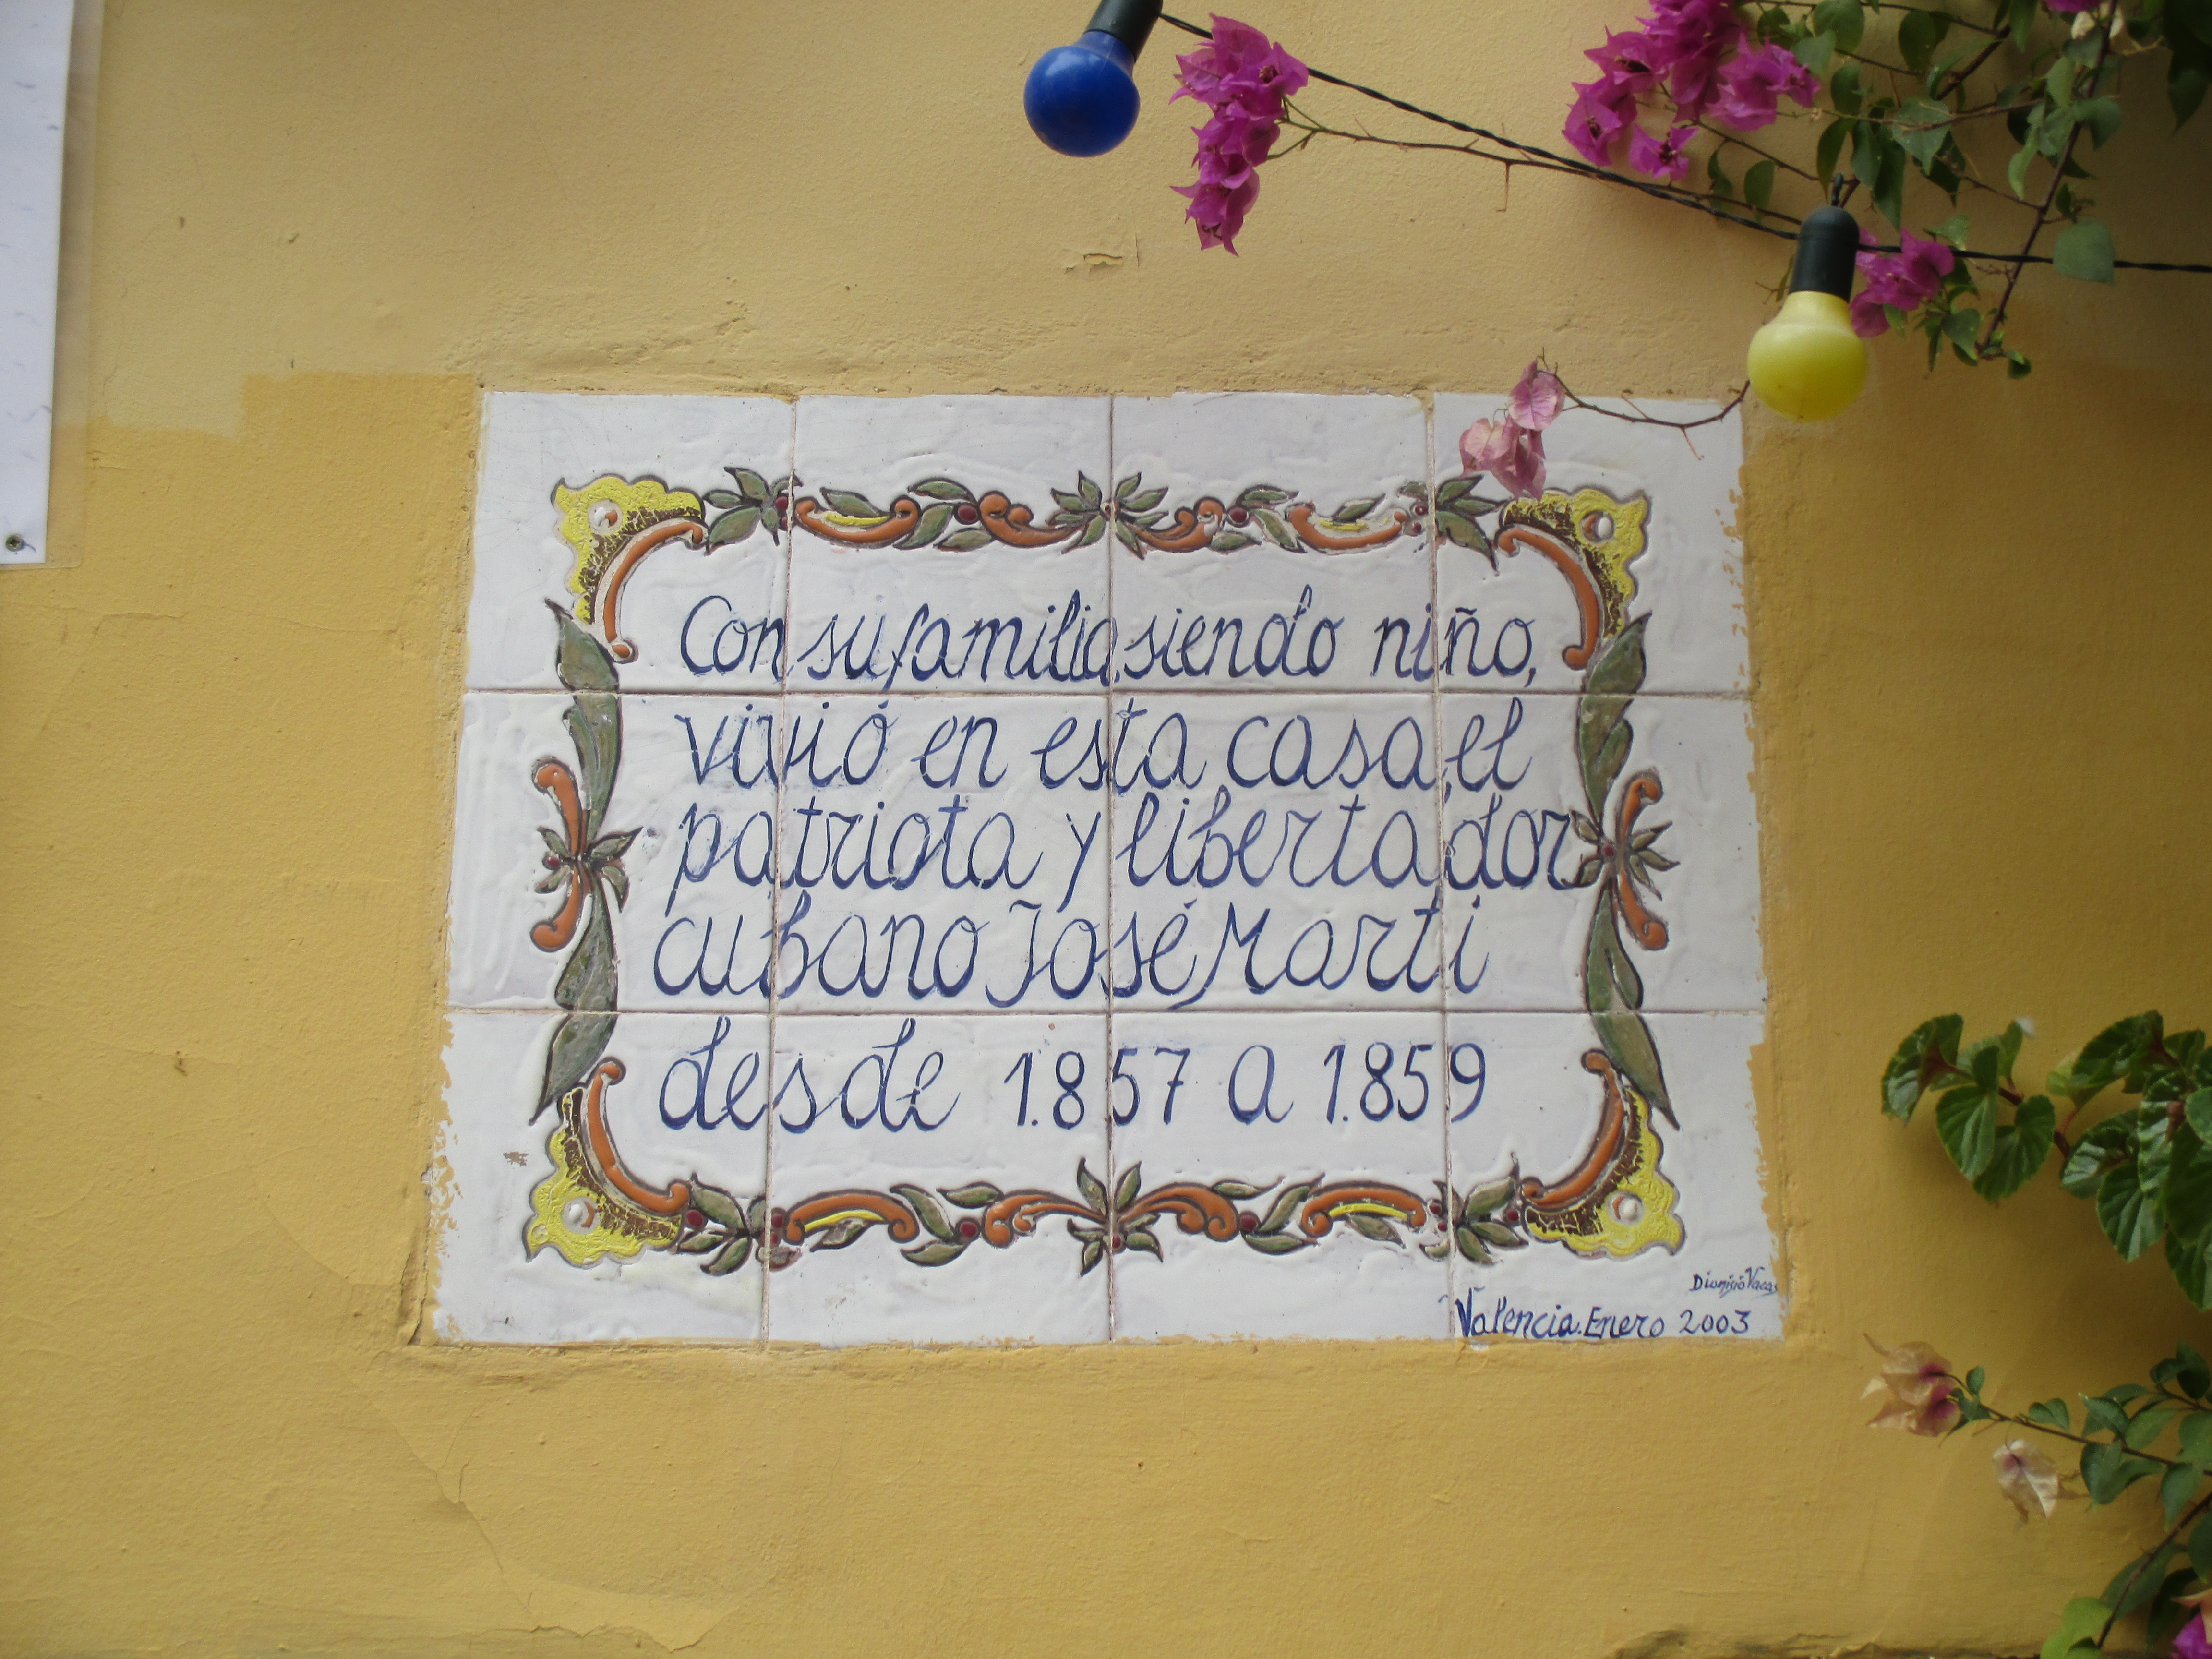 Con su familia, siendo niño,
vivió en esta casa, el
patriota y libertador
cubano José Martí
desde 1.857 a 1.859
Dionisio Vacas
Valencia. Enero 2003